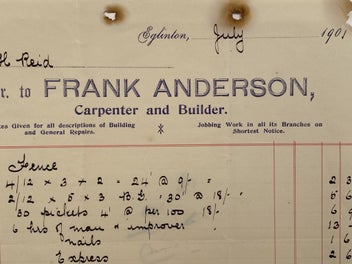 Eglinton, July 1901
H Reid
r. to FRANK ANDERSON,
Carpenter and Builder.
tes Given for all descriptions of Building and General Repairs.
Jobbing Work in all its Branches on Shortest Notice.
Fence
4/12 x 3 + 2 = 24' @ 9/- 2 3
2/12 x 5 x 3 = 30' @ 18/- 5
30 pickets 4' @ per 100 18/- 5
6 hrs of man & improver 13
nails 1 6
Express 2